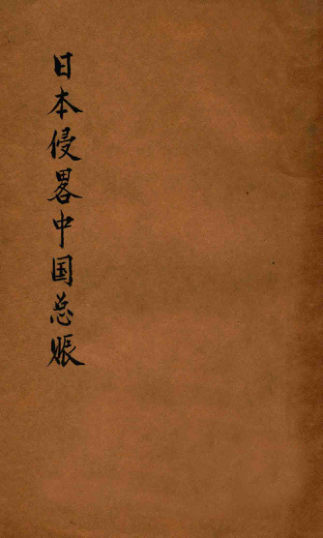 日本侵畧中国总账